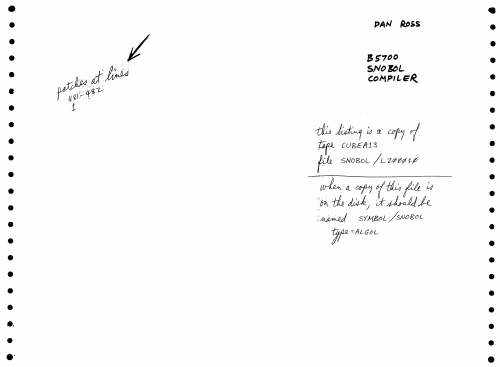 DAN ROSS
B5700
SNOBOL
COMPILER
patches at lines
481-482
1
this listing is a copy of
tape CUBEA13
file SNOBOL/L200010
when a copy of this file is
on the disk, it should be
named SYMBOL/SNOBOL
type=ALGOL